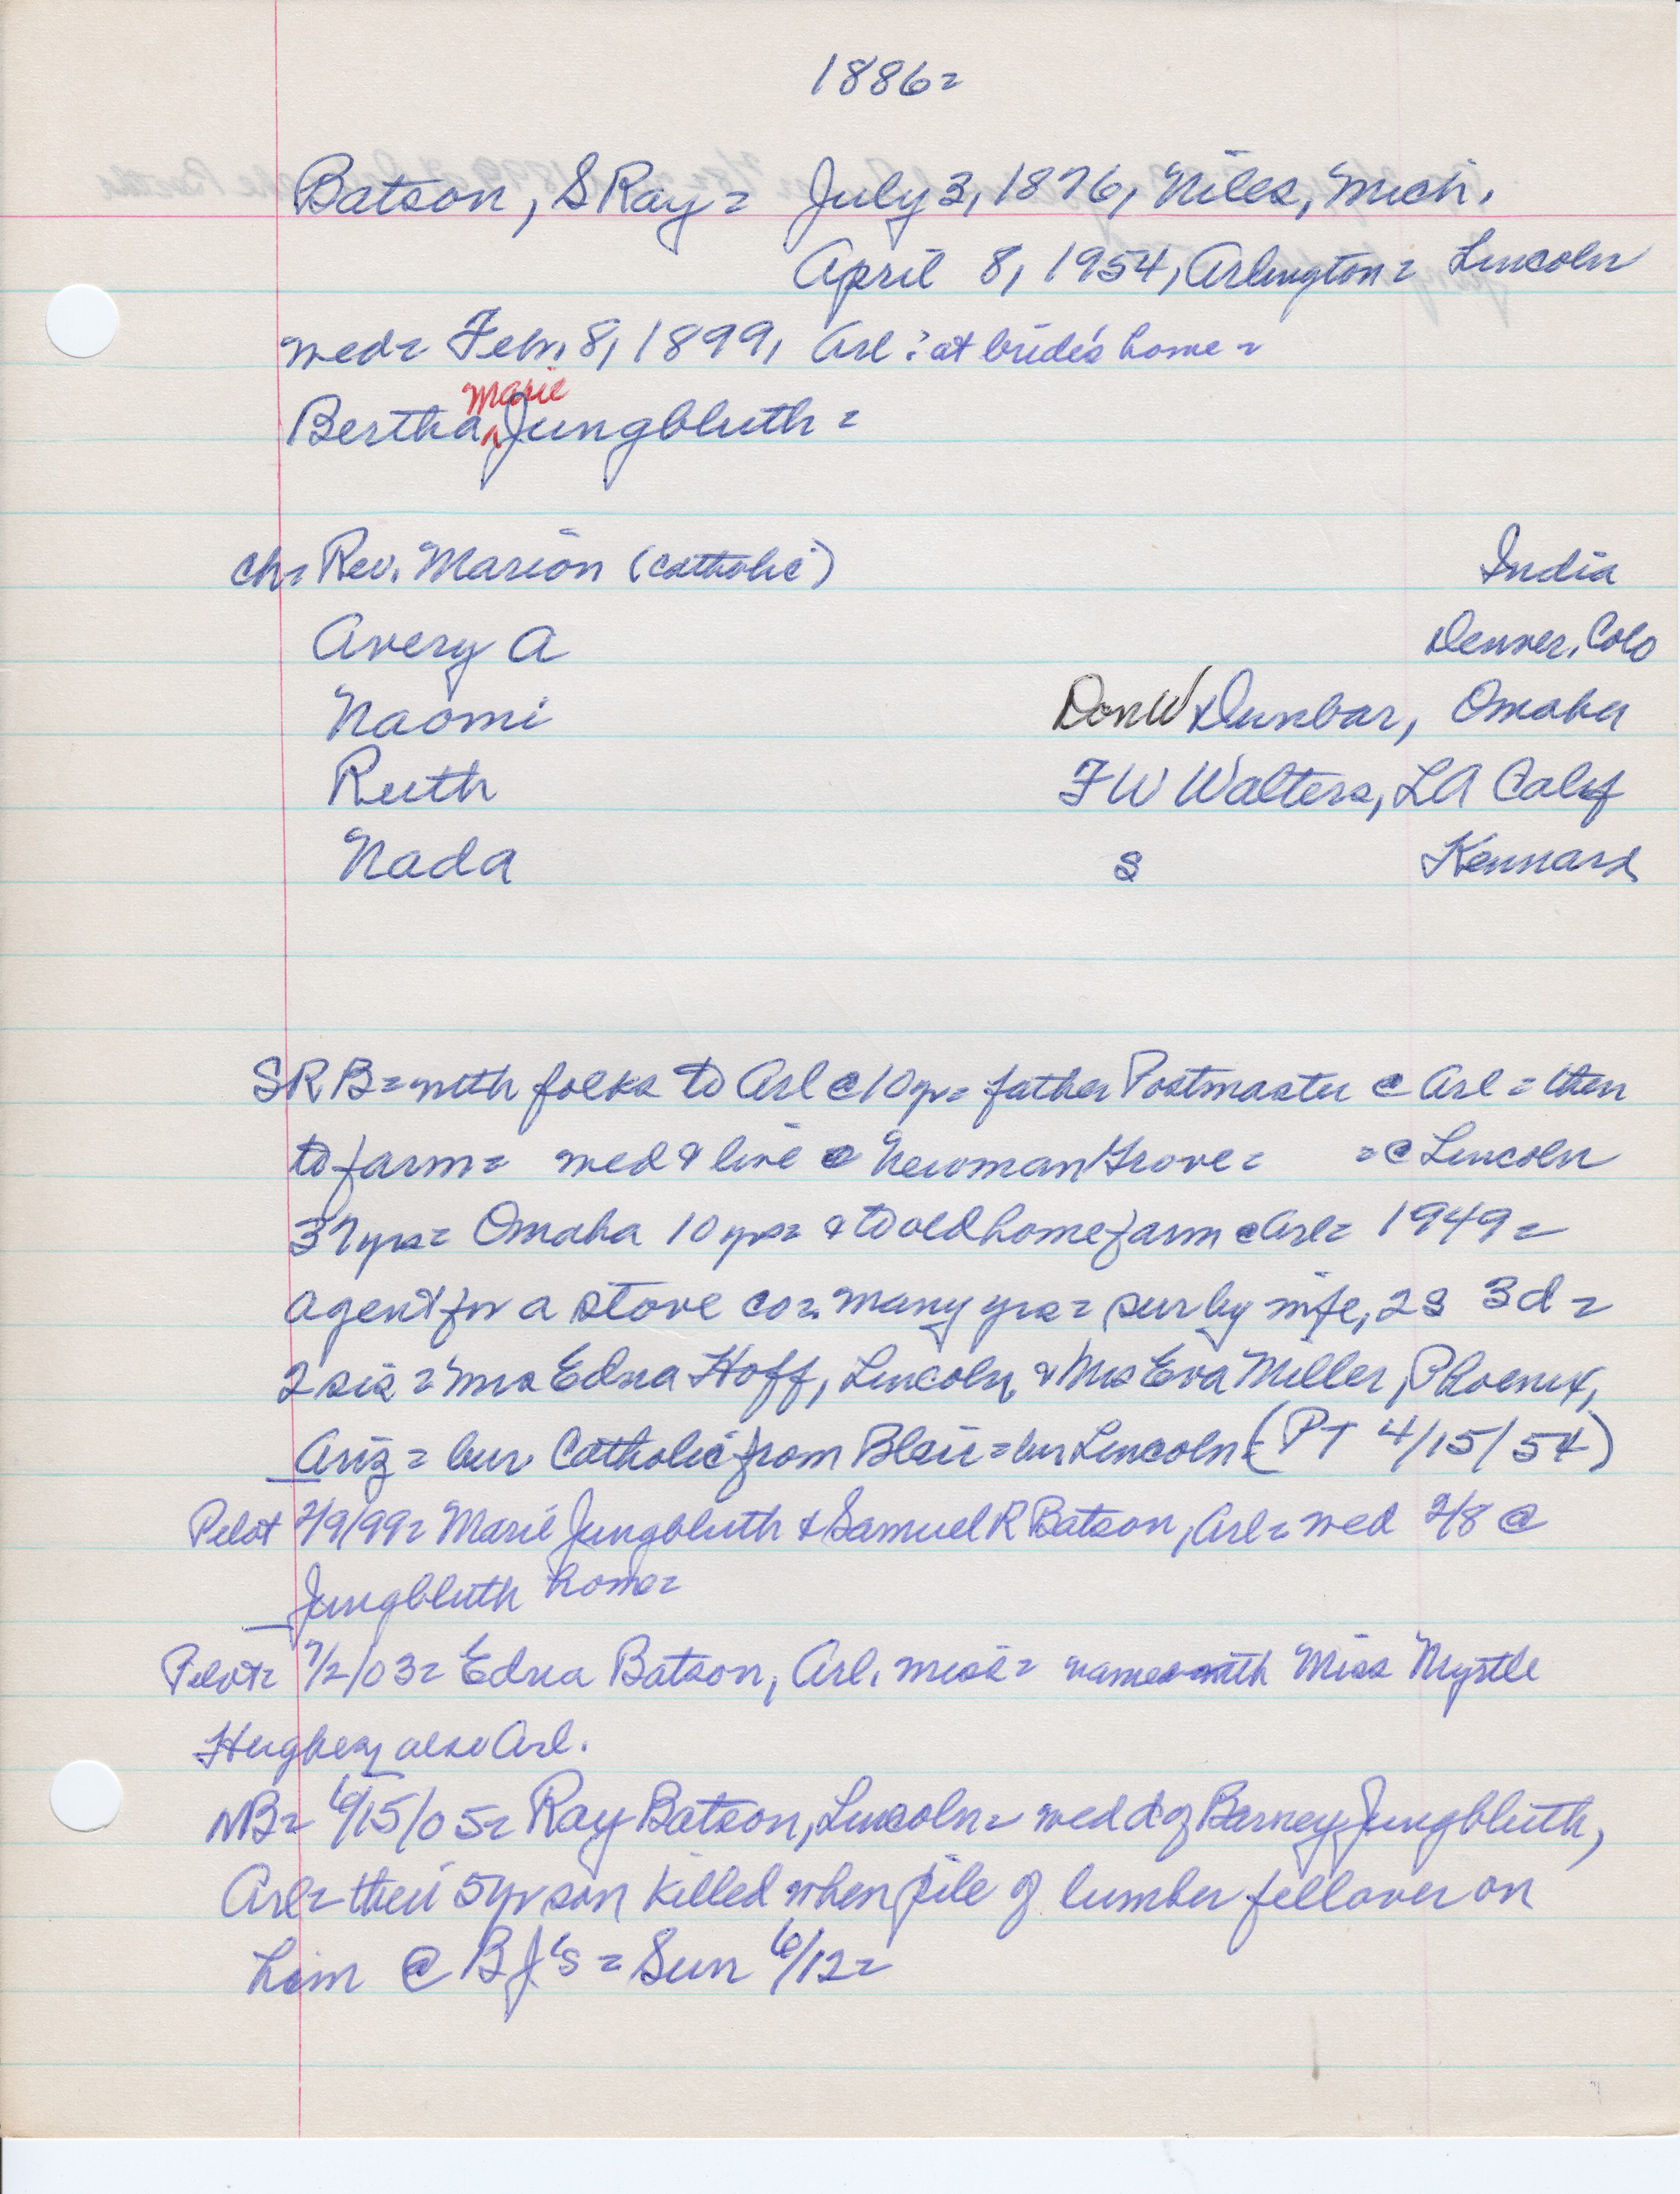 1886=
Batson, S Ray = July 3, 1876, Niles, Mich.
April 8, 1954, Arlington = Lincoln
wed = Feb. 8, 1899, Arl : at bride's home =
Marie
Bertha ^ Jungbluth =
ch = Rev. Marion (Catholic) India
Avery A Denver, Colo
Naomi Don W Dunbar, Omaha
Ruth F W Walters, LA Calif
Nada S Kennard
SRB = with folks to Arl @ 10 yr = father Postmaster @ Arl = then
to farm = wed & live @ Newman Grove = = @ Lincoln
37 yrs = Omaha 10 yrs = & to old home farm @ Arl = 1949 =
agent for a stove co = many yrs = sur by wife, 2s 3d =
2 sis = Mrs Edna Hoff, Lincoln, & Mrs Eva Miller, Phoenix,
Ariz = bur Catholic from Blair = bur Lincoln (PT 4/15/54)
Pilot 2/9/99 = Marie Jungbluth & Samuel R Batson, Arl = wed 2/8 @
Jungbluth home =
Pilot = 7/2/03 = Edna Batson, Arl. miss = named with Miss Myrtle
Hughey also Arl.
NB = 6/15/05 = Ray Batson, Lincoln = wed d of Barney Jungbluth,
Arl = their 5 yr son killed when pile of lumber fell over on
him @ BJ's = Sun 6/12 =